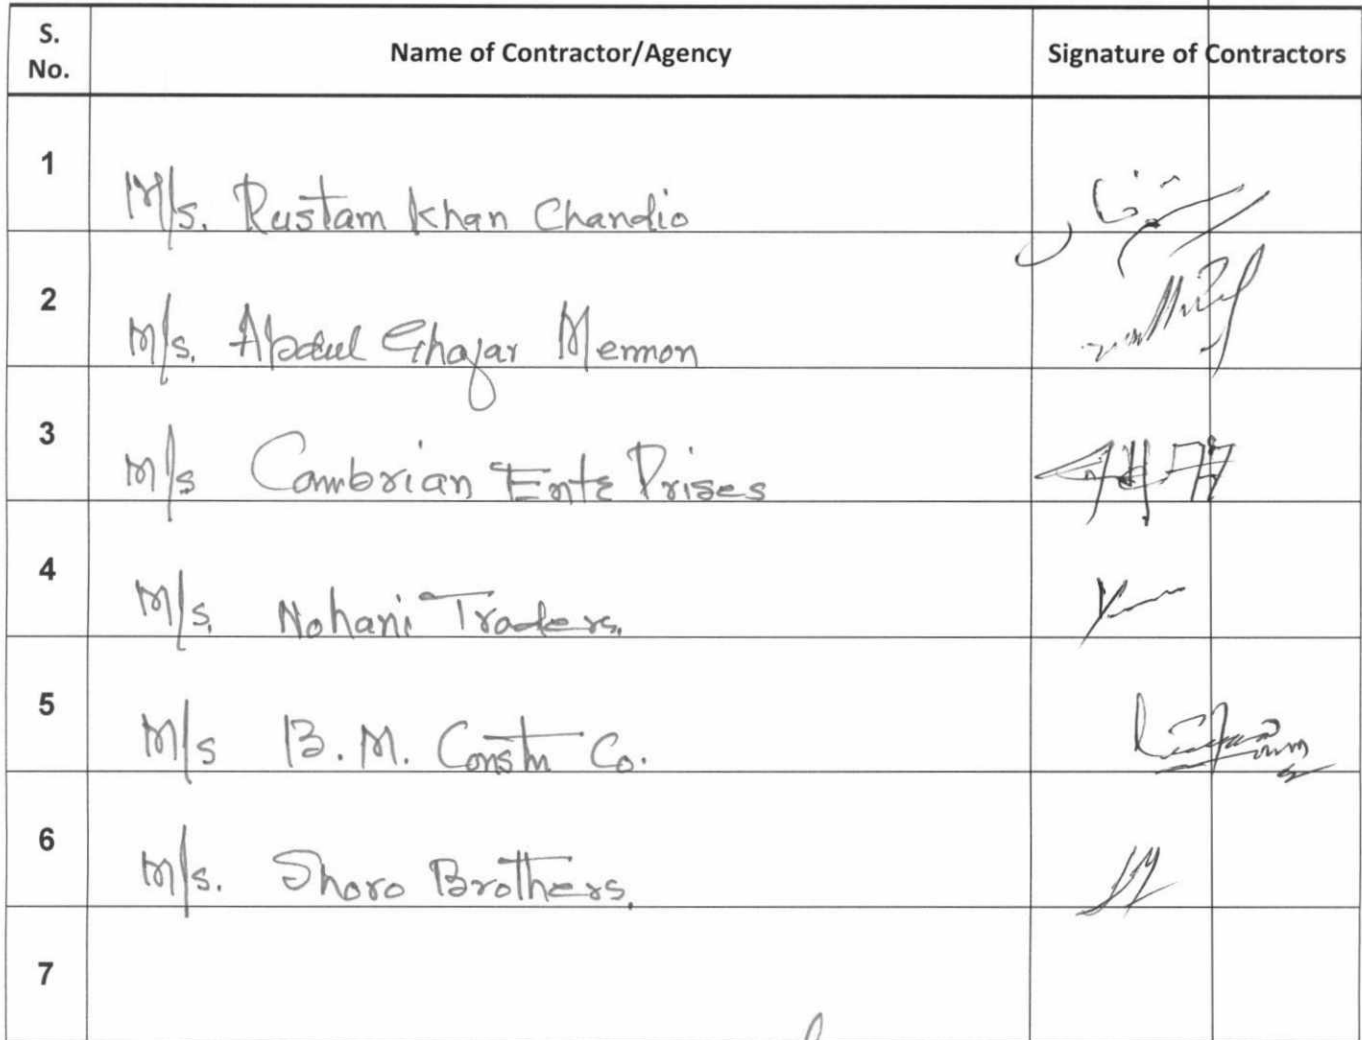 S. No. Name of Contractor/Agency Signature of Contractors
1 M/s. Rustam Khan Chandio
2 M/s. Abdul Ghafar Memon
3 M/s Cambrian Ente Prises
4 M/s. Nohani Traders.
5 M/s B.M. Constn Co.
6 M/s. Shoro Brothers.
7